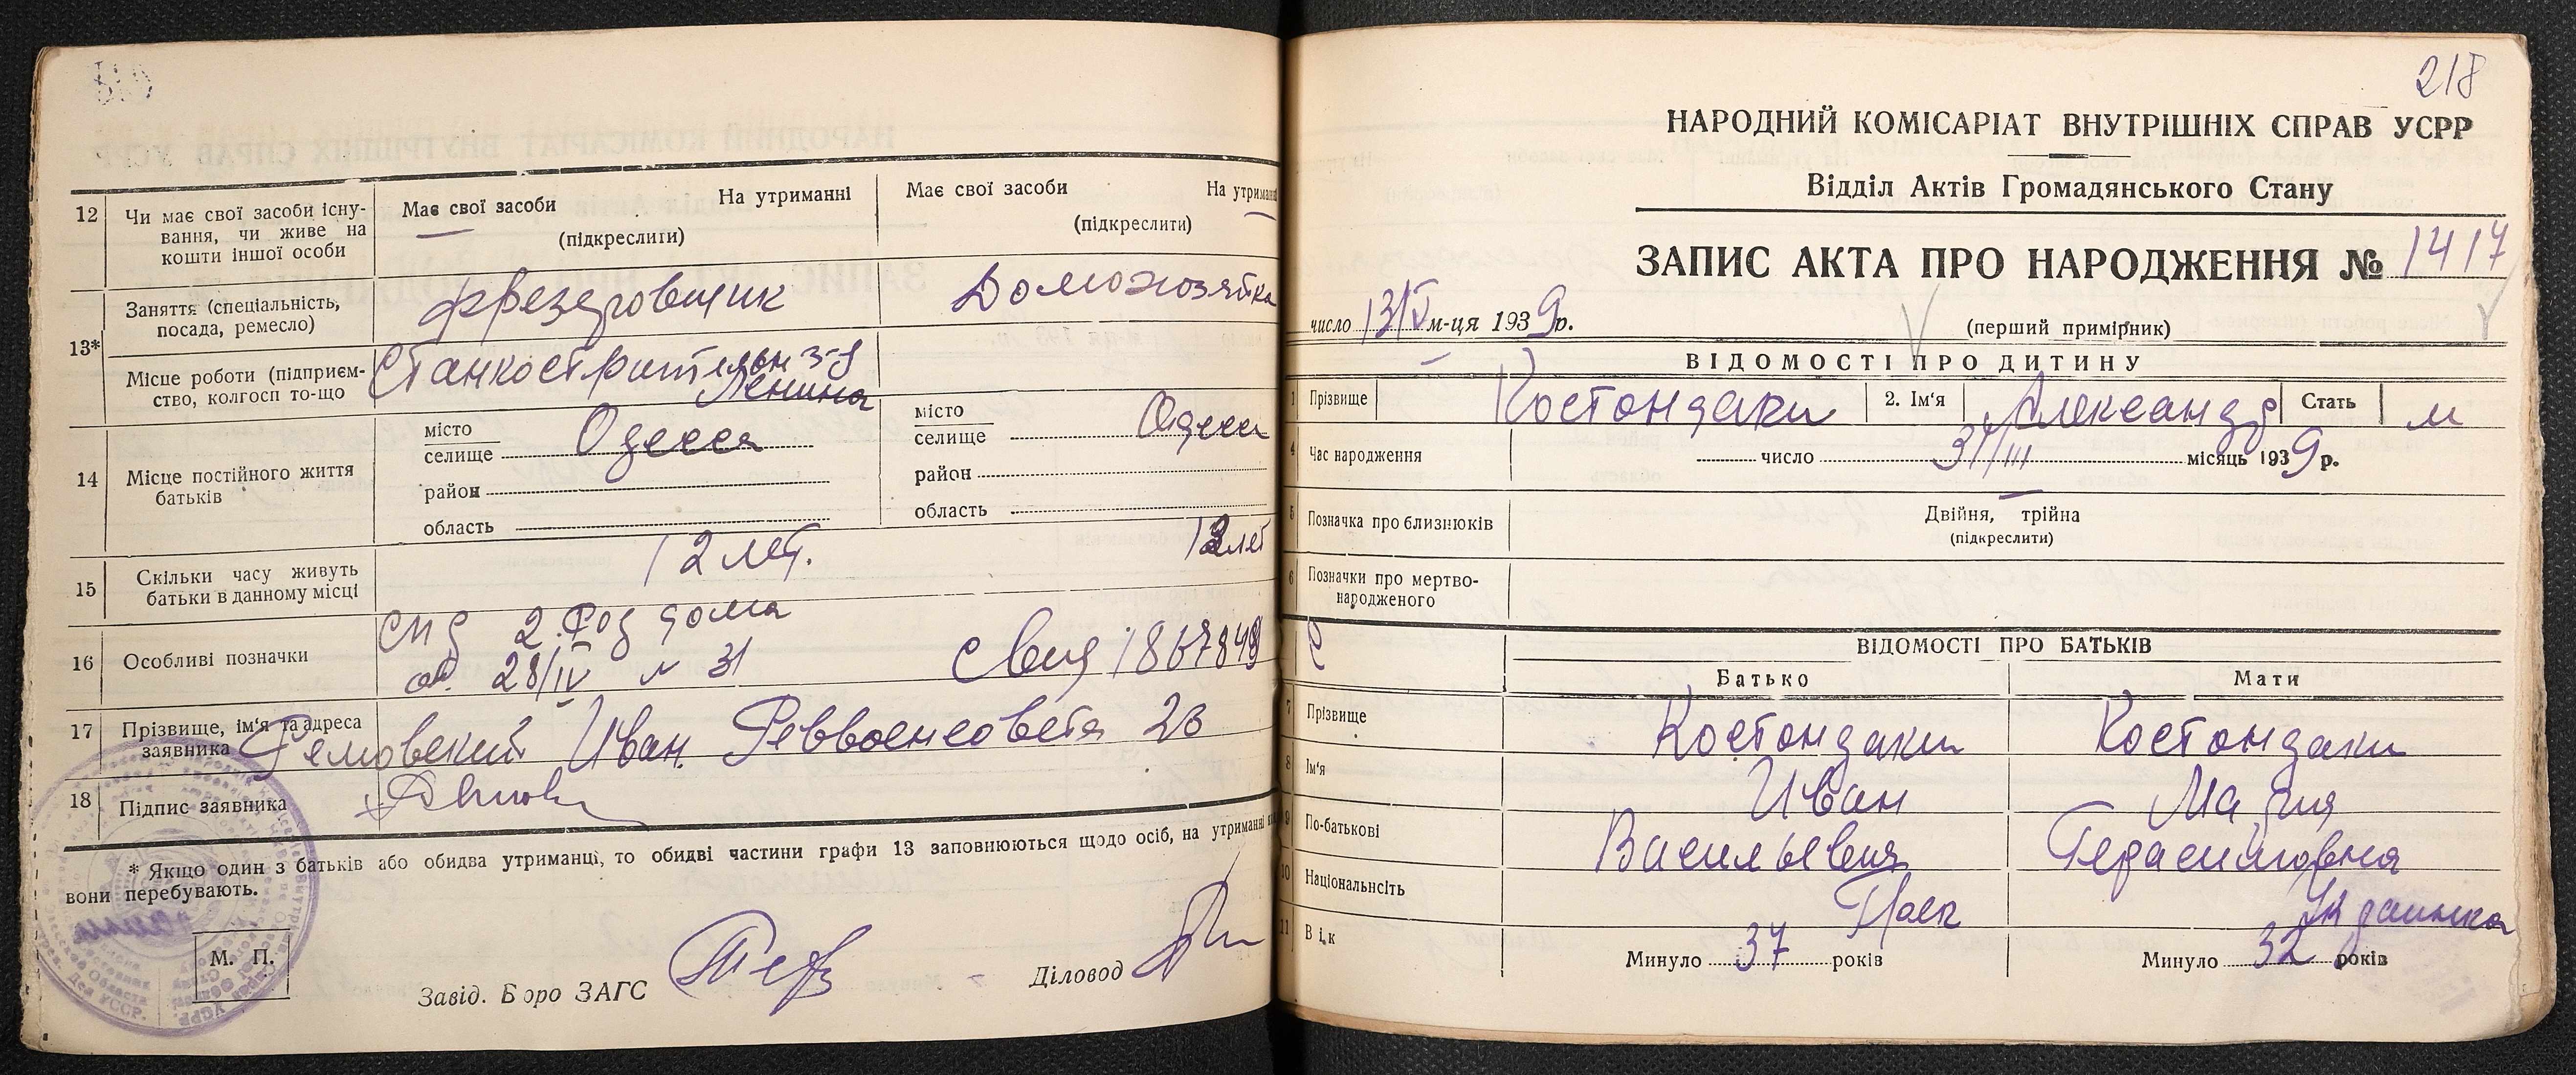 12
Чи має свої засоби існу-
вання, чи живе на
кошти іншої особи
Має свої засоби
На утриманні
(підкреслити)
Має свої засоби
На утриманні
(підкреслити)
13*
Заняття (спеціальність,
посада, ремесло)
Фрезеровщик
Домохозяйка
Місце роботи (підприєм-
ство, колгосп то-що
Станкостроительн з-д
Ленина
14
Місце постійного життя
батьків
місто
селище
Одесса
район
область
місто
селище
Одесса
район
область
15
Скільки часу живуть
батьки в данному місці
12 лет.
12 лет
16
Особливі позначки
спр 2 род дома
от. 28/IV № 31
Свид 1867849
17
Прізвище, ім'я та адреса
заявника
Иван. Реввоенсовета 23
18
Підпис заявника
* Якщо один з батьків або обидва утриманці, то обидві частини графи 13 заповнюються щодо осіб, на утриманні
вони перебувають.
М. П.
Завід. Бюро ЗАГС
Діловод
218
НАРОДНИЙ КОМІСАРІАТ ВНУТРІШНІХ СПРАВ УСРР
Відділ Актів Громадянського Стану
ЗАПИС АКТА ПРО НАРОДЖЕННЯ № 1417
число 13/V м-ця 1939 р.
(перший примірник)
ВІДОМОСТІ ПРО ДИТИНУ
1 Прізвище Костондаки 2. Ім'я Александр Стать м
4 Час народження число 31/III місяць 1939 р.
5 Позначка про близнюків Двійня, трійна
(підкреслити)
6 Позначки про мертво-
народженого
ВІДОМОСТІ ПРО БАТЬКІВ
Батько Мати
7 Прізвище Костондаки Костондаки
8 Ім'я Иван Мария
9 По-батькові Васильевич Герасимовна
10 Національність Украинка
11 Вік Минуло 37 років Минуло 32 років